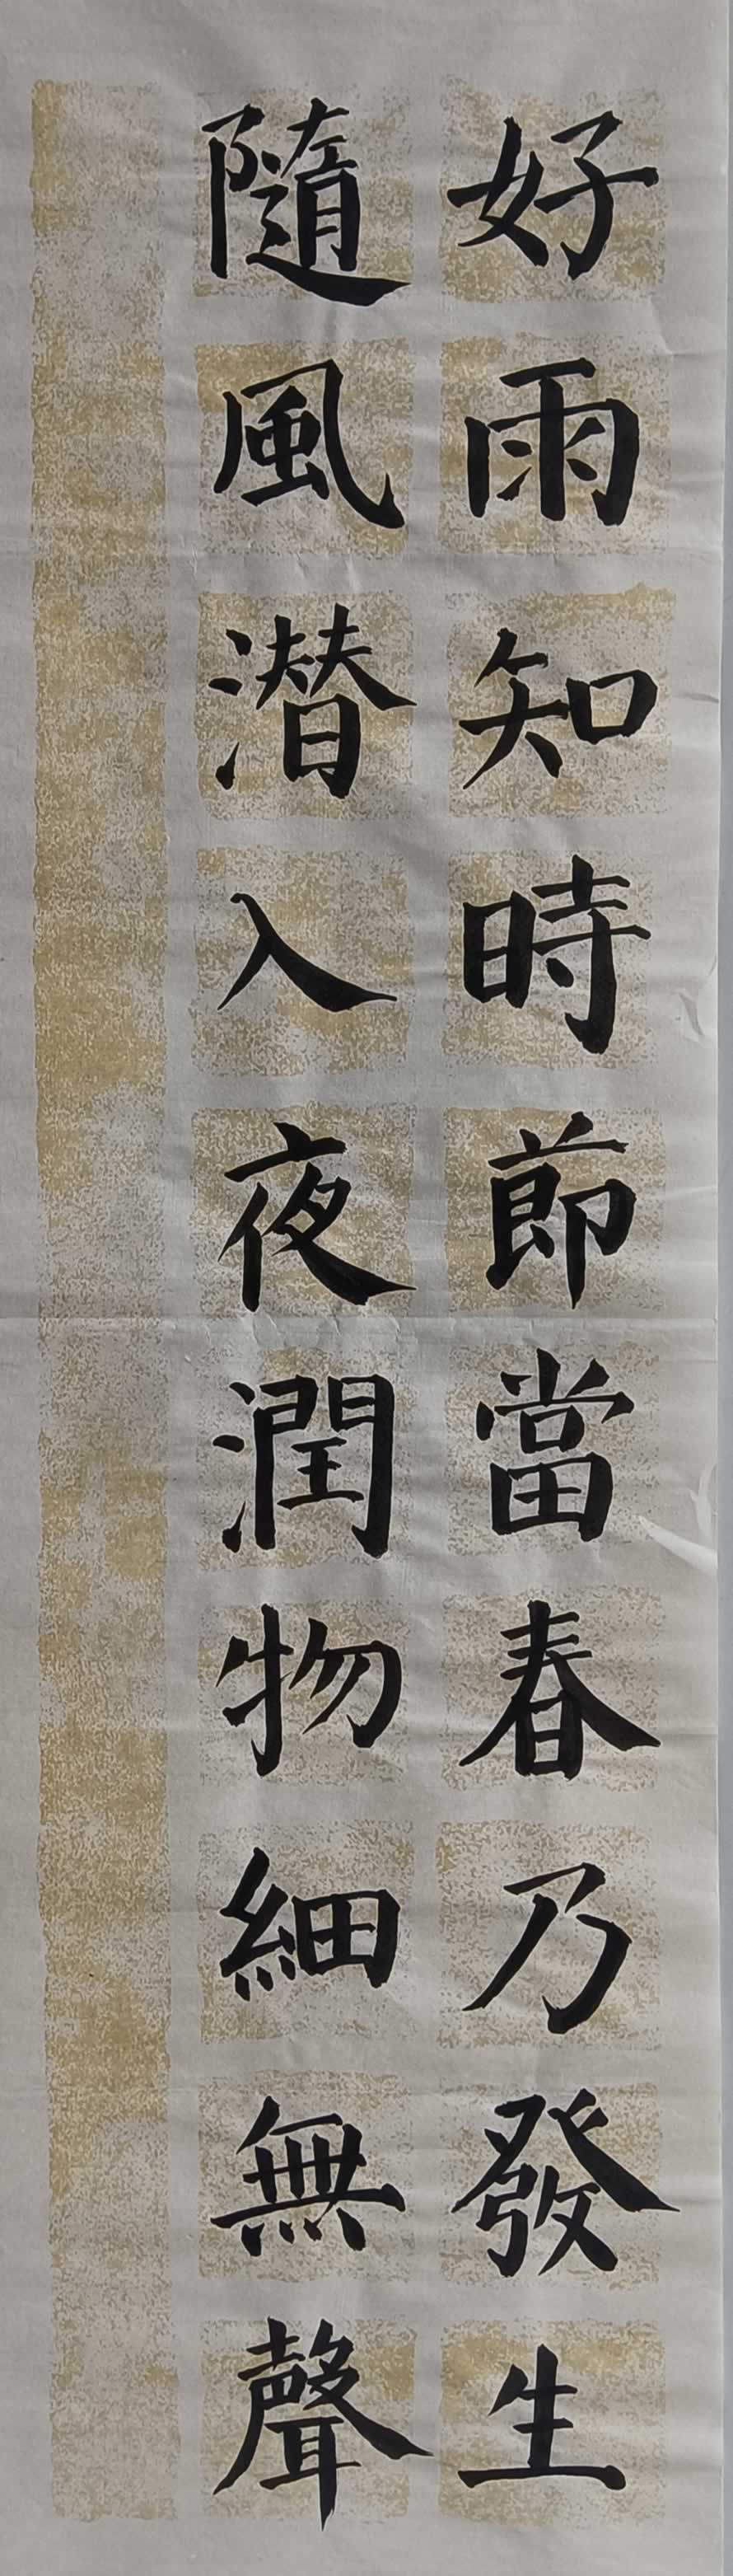 好雨知時節當春乃發生
隨風潜入夜潤物細無聲